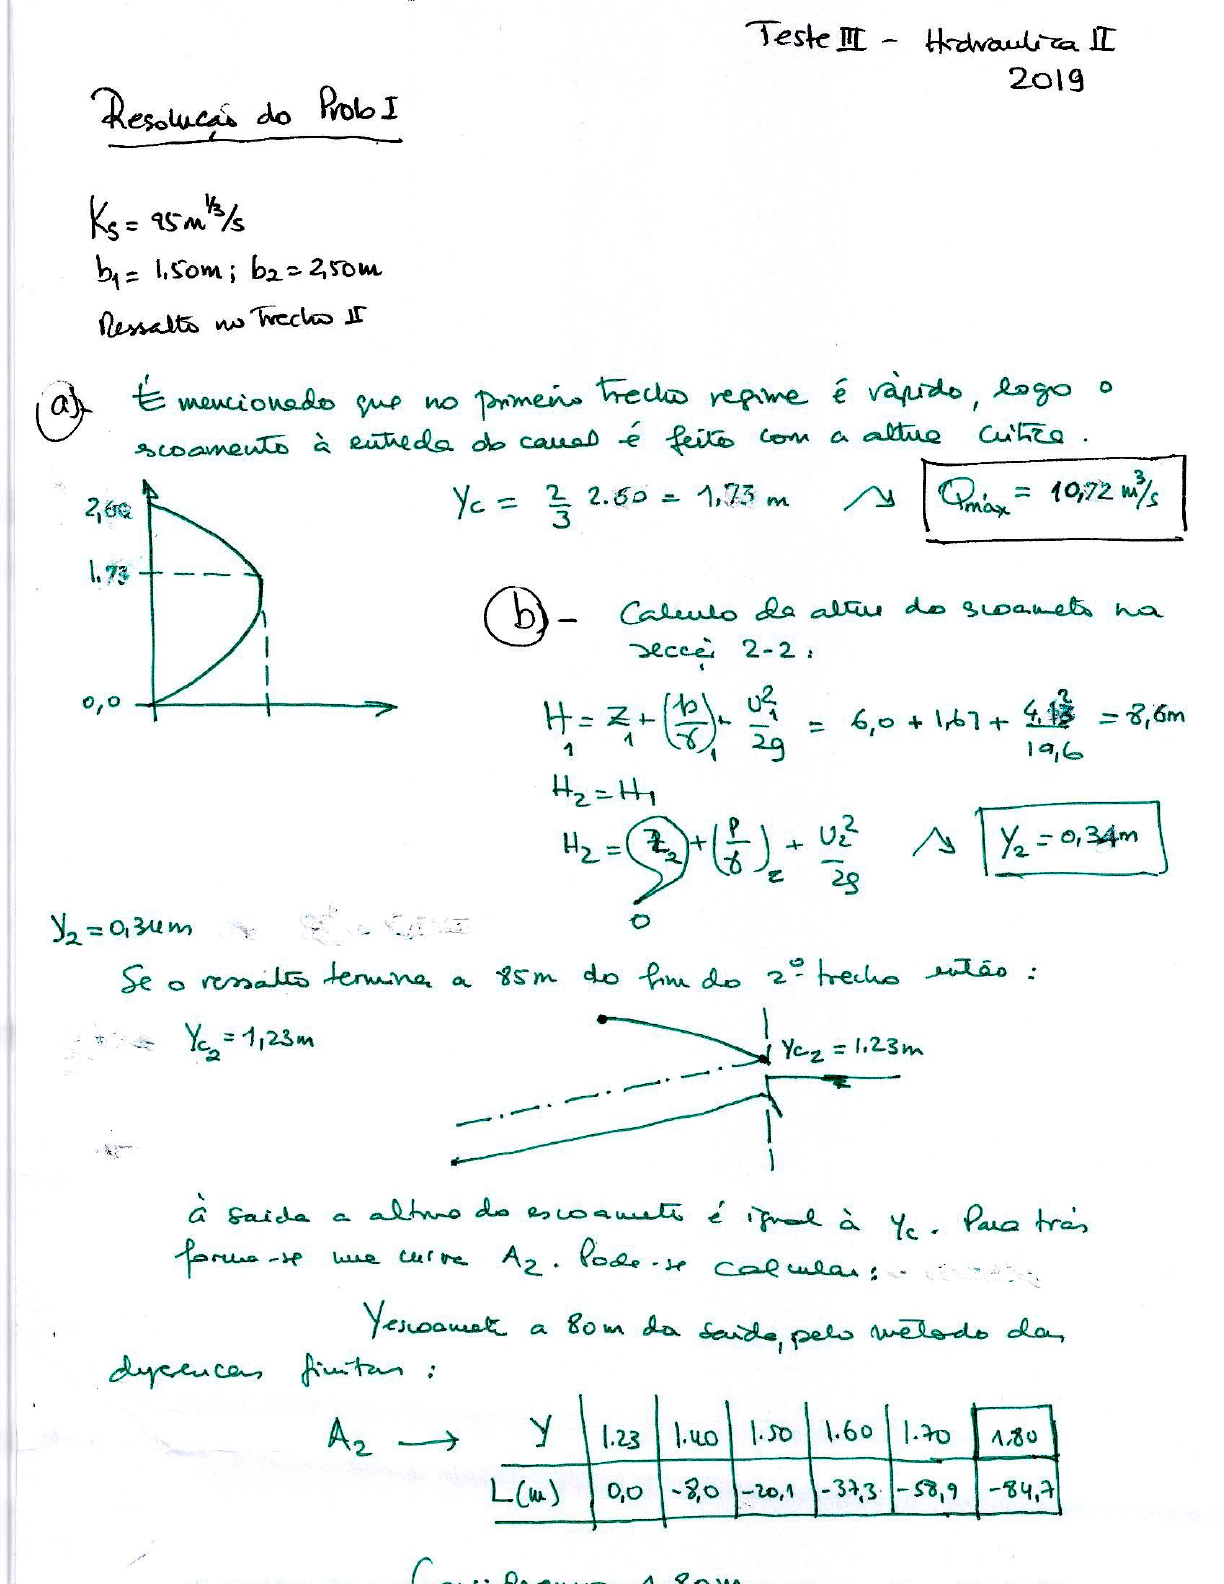 Teste III - Hidraulica II
2019
Resolução do Prob I
Ks = 95 m^1/3/s
b1 = 1.50m ; b2 = 2,50m
Ressalto no Trecho II
a)- É mencionado que no primeiro trecho regime é rápido, logo o
escoamento à entrada do canal é feito com a altura crítica.
Yc = 2/3 2.60 = 1,73 m Qmáx = 10,72 m³/s
2,60
1.73
0,0
b)- Calculo da altura do escoamento na
secção 2-2:
H1 = Z1 + (p/γ)1 + U1²/2g = 6,0 + 1,67 + 4,13²/19,6 = 8,6m
H2 = H1
H2 = Z2 + (P/γ)2 + U2²/2g Y2 = 0,34m
0
Y2 = 0,34m
Se o ressalto termina a 85m do fim do 2º trecho então:
Yc2 = 1,23m
Yc2 = 1.23m
À saida a altura do escoamento é igual à Yc. Para trás
forma-se uma curva A2. Pode-se calcular:
Yescoamento a 80m da saida, pelo método das
diferenças finitas:
A2 → Y 1.23 1.40 1.50 1.60 1.70 1.80
L(m) 0,0 -8,0 -20,1 -37,3 -58,9 -84,7
1.80m